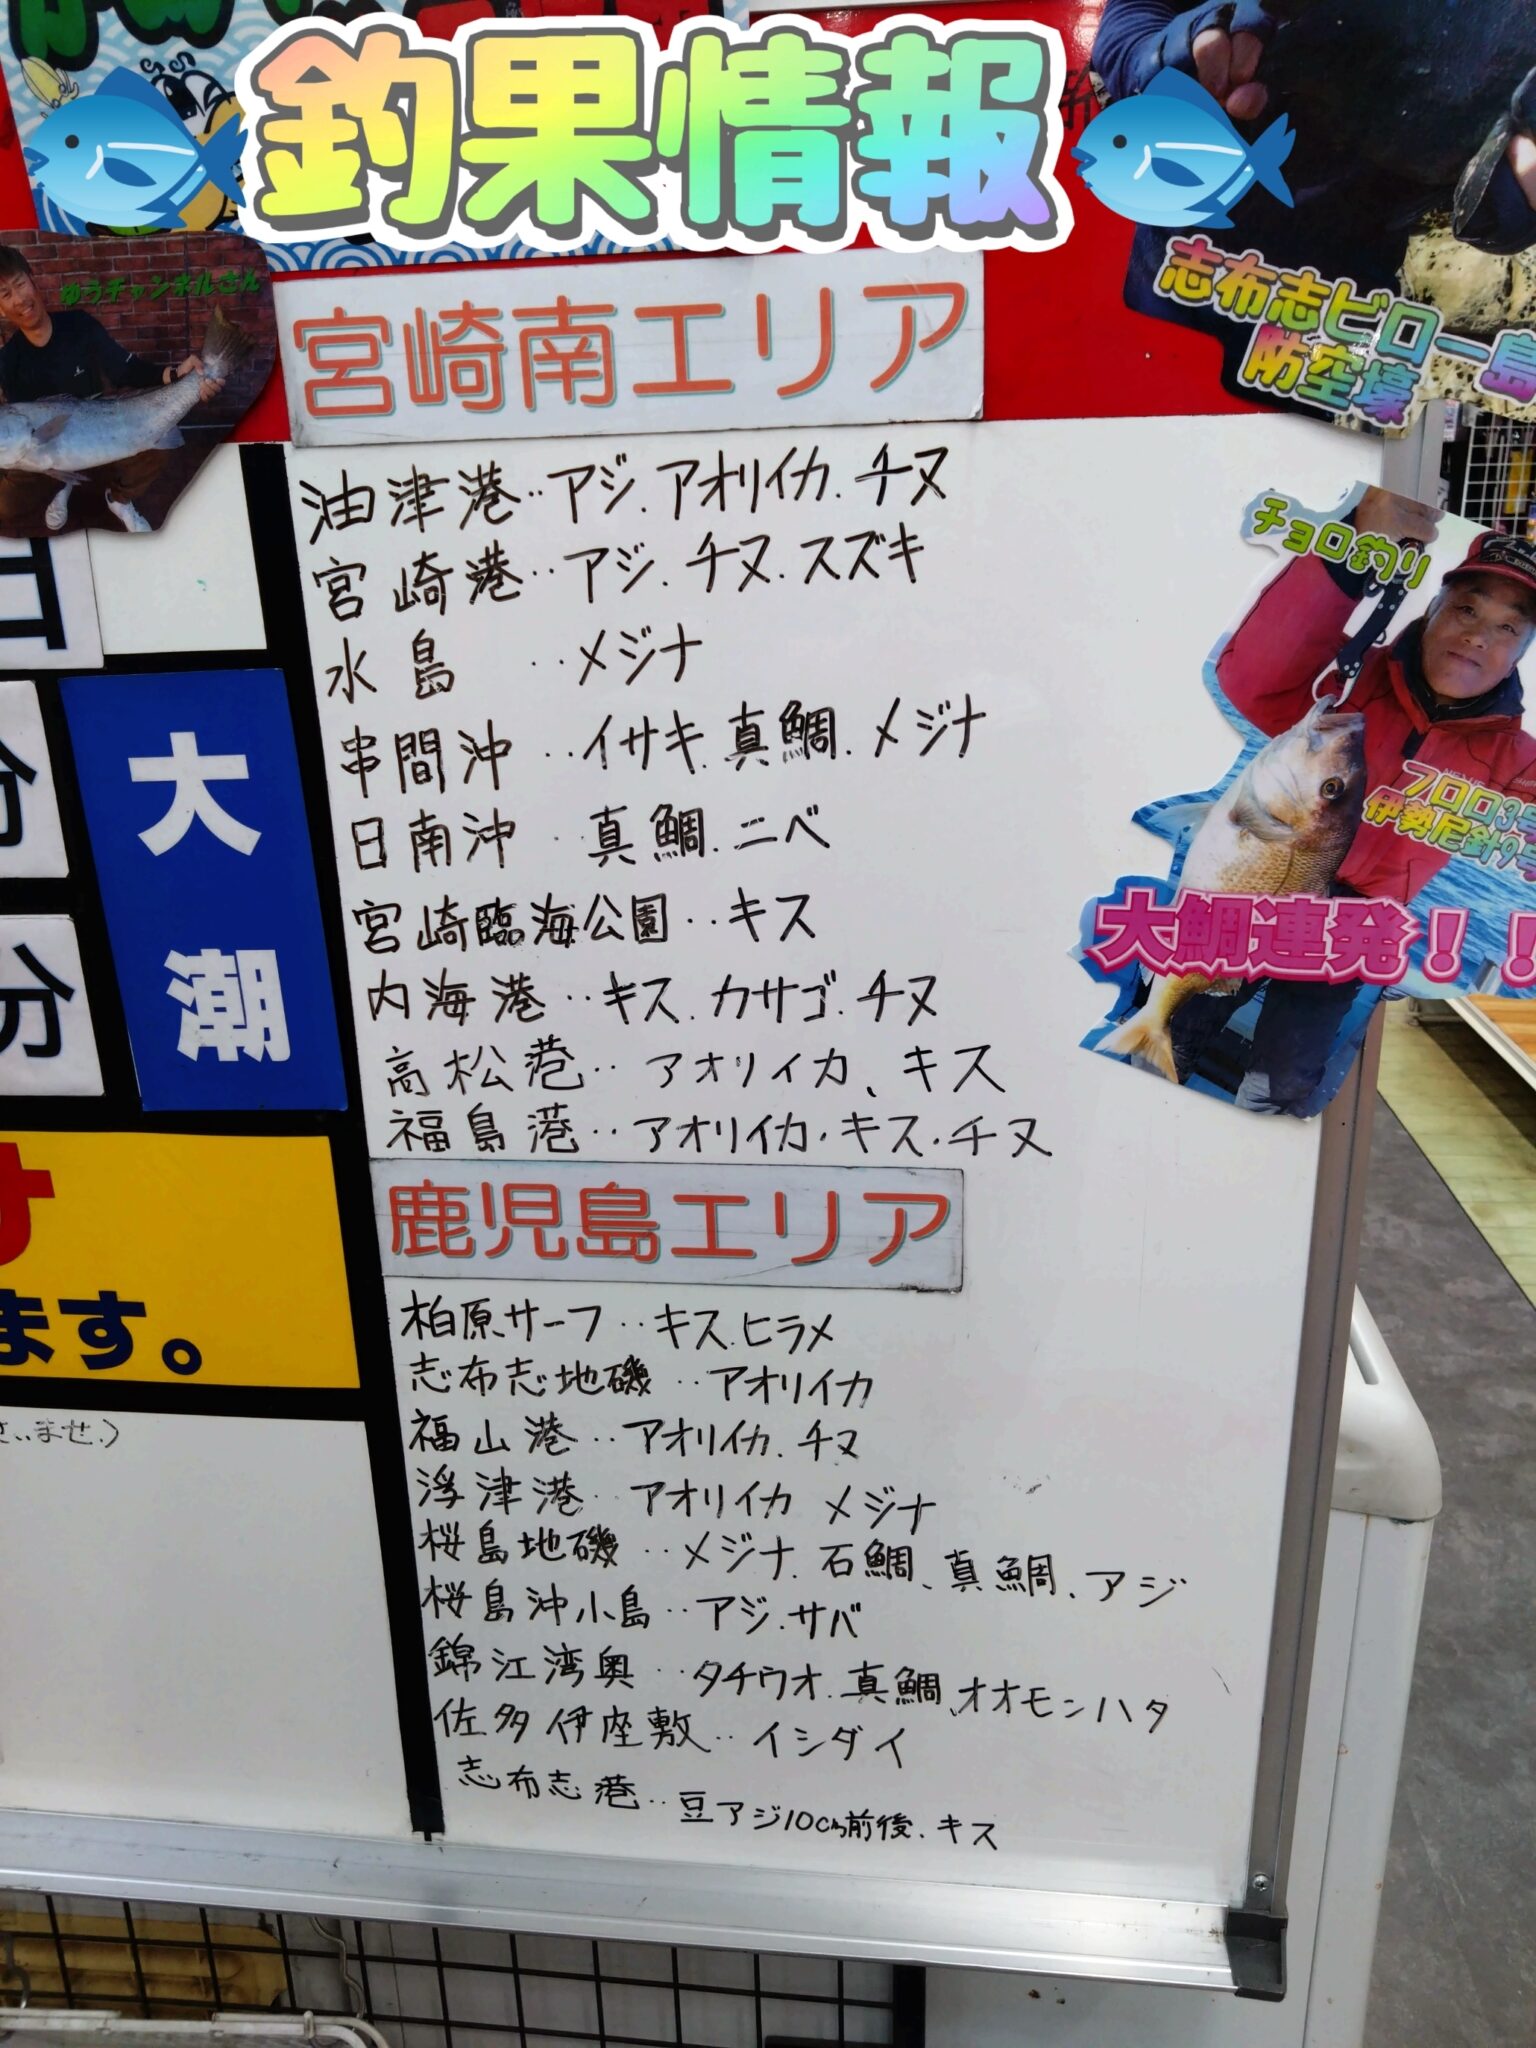 釣果情報
ゆうチャンネルさん
志布志ビロー島
防空壕
宮崎南エリア
油津港‥アジ、アオリイカ、チヌ
宮崎港‥アジ、チヌ、スズキ
水島‥メジナ
串間沖‥イサキ、真鯛、メジナ
日南沖‥真鯛、ニベ
宮崎臨海公園‥キス
内海港‥キス、カサゴ、チヌ
高松港‥アオリイカ、キス
福島港‥アオリイカ・キス・チヌ
チョロ釣り
フロロ3号
伊勢尼針9号
大鯛連発!!
大潮
分
ます。
さいませ。)
鹿児島エリア
柏原サーフ‥キス、ヒラメ
志布志地磯‥アオリイカ
福山港‥アオリイカ、チヌ
浮津港‥アオリイカ メジナ
桜島地磯‥メジナ、石鯛、真鯛、アジ
桜島沖小島‥アジ、サバ
錦江湾奥‥タチウオ、真鯛、オオモンハタ
佐多伊座敷‥イシダイ
志布志港‥豆アジ10cm前後、キス